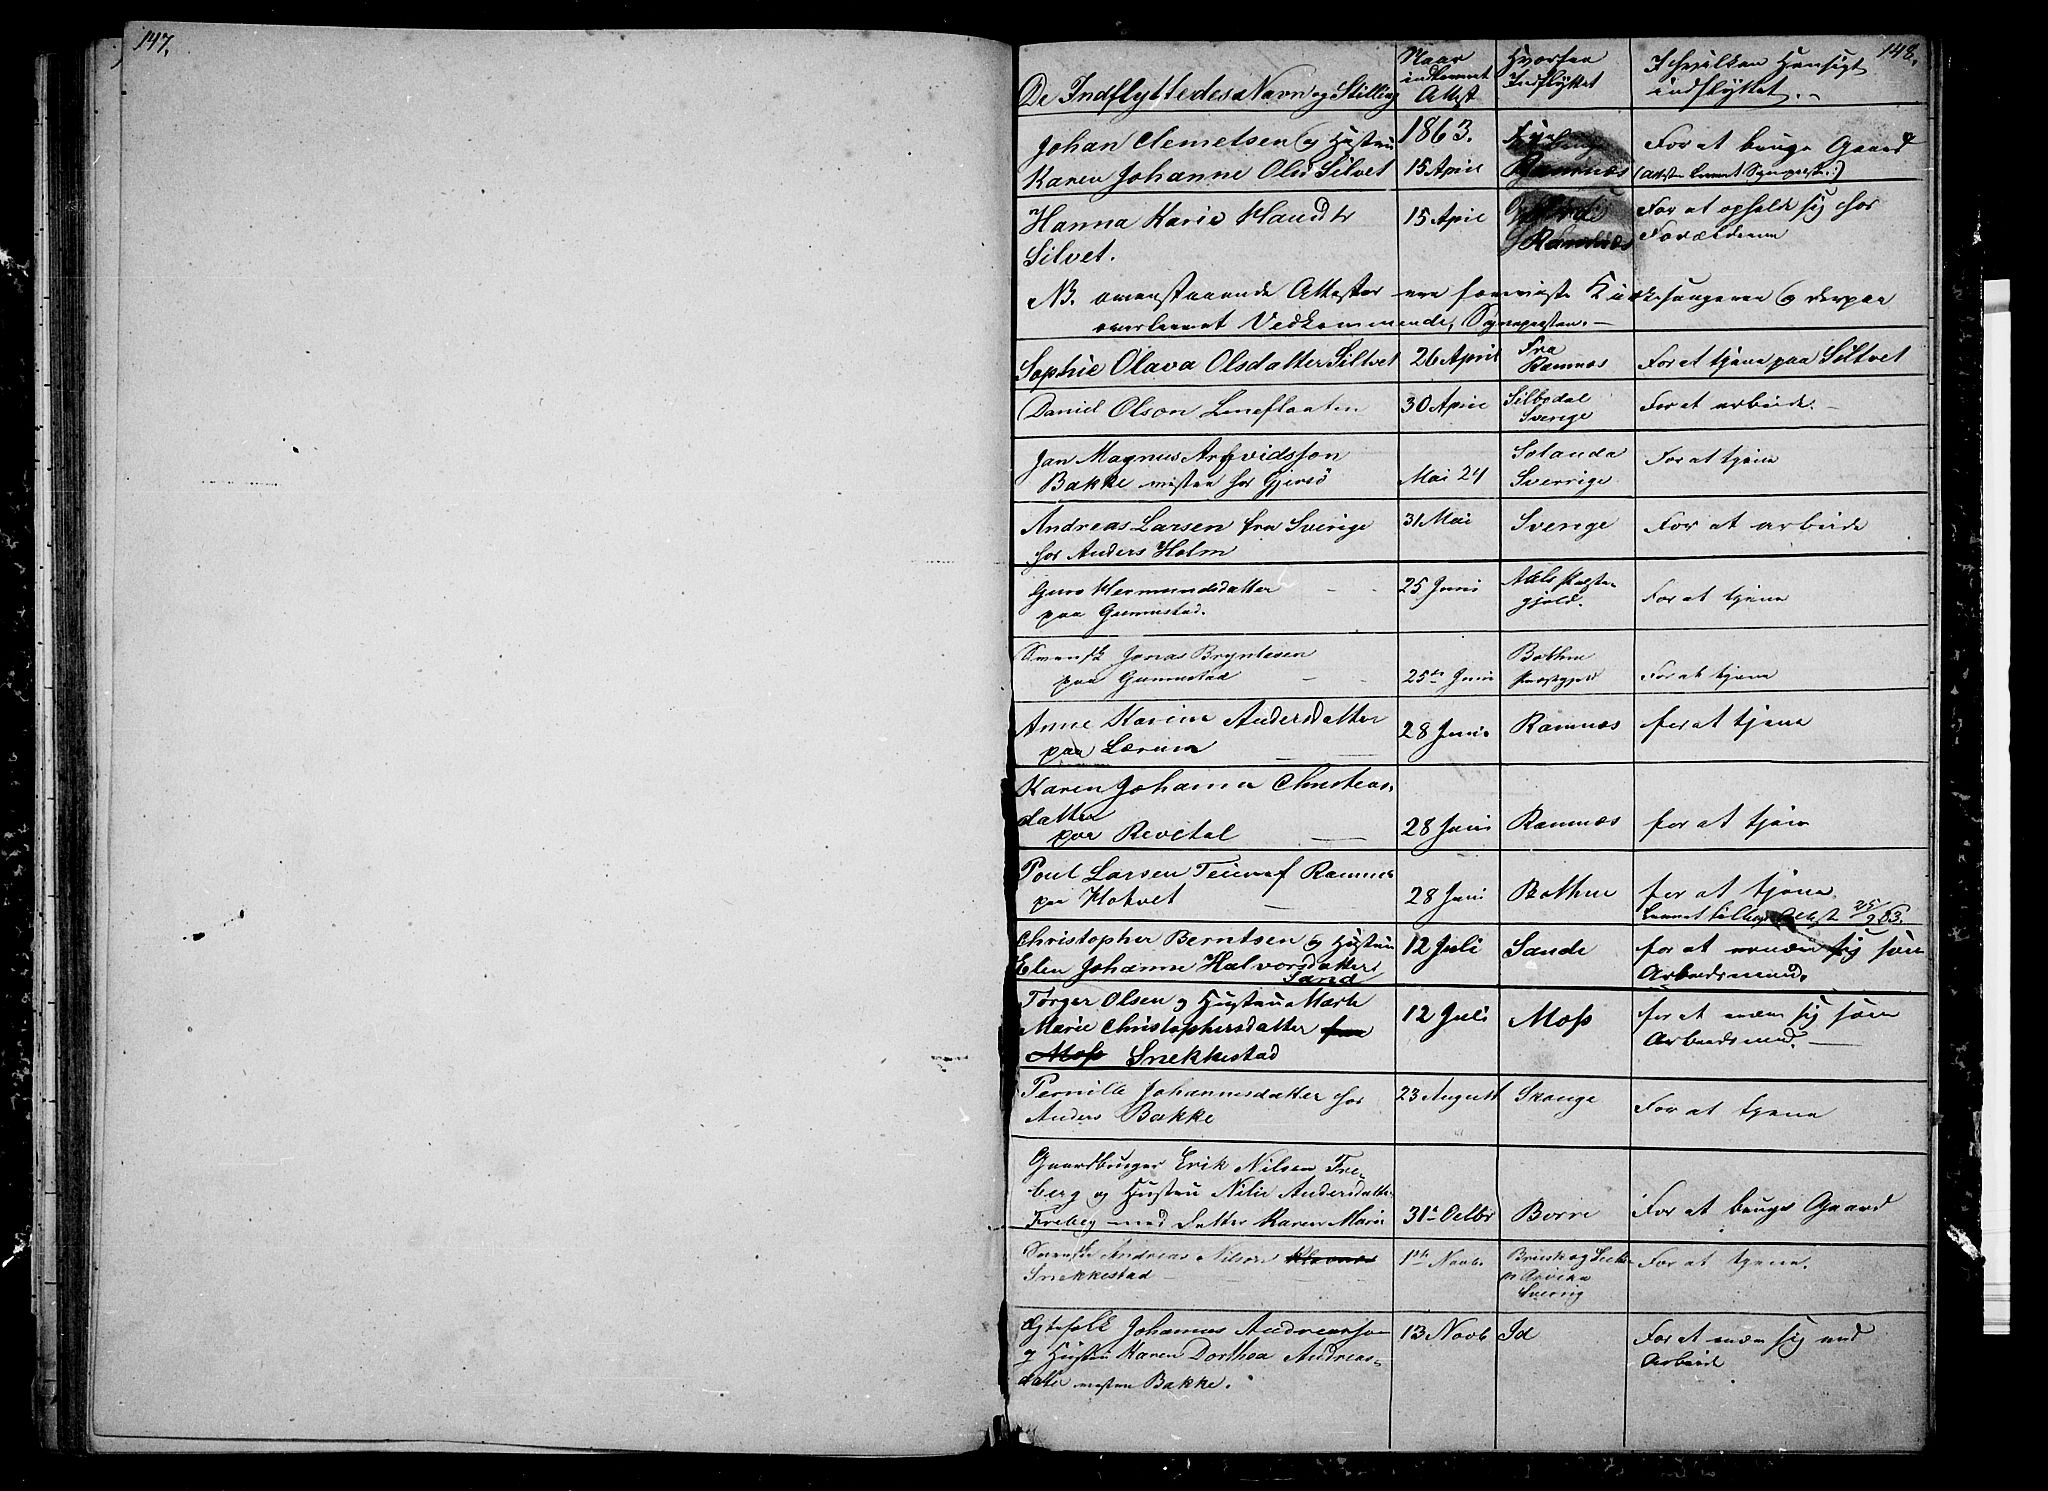 147.
148.
De Indflyttedes Navn og Stilling
Naar indleveret Attest
Hvorfra Indflyttet
I hvilken Hensigt indflyttet.
1863.
Johan Clemetsen og Hustru
Karen Johanne Olsd Silvet
15 April
Ramnæs
For at bruge Gaard
Hanna Karie
Silvet.
15 April
Ramnæs
For at opholde sig hos
Forældrene
NB. ovenstaaende Attester ere foreviste Kirkesangeren og derpaa
overleveret Vedkommende, Sognepresten. —
Sophie Olava Olsdatter Siltvet
26 April
Fra
Ramnæs
For at tjene paa Siltvet
Daniel Olson
30 April
Silbodal
Sverige
For at arbeide. —
Jan Magnus Arfvidsson
Bakke nesten for Gjersö
Mai 24
Solanda
Sverrige
For at tjene
Andreas Larsen fra Sverige
hos Anders Holm
31 Mai
Sverige
For at arbeide
Guro Hermundsdatter
paa Gunnestad.
25 Juni
Aals Præste-
gjeld.
For at tjene
Svensk Jonas Bryntesen
paa Gunnestad
25de Juni
Bothne
Præstgjeld
For at tjene
Anne Karine Andersdatter
paa Lærum
28 Juni
Ramnæs
for at tjene
Karen Johanne Christens-
datter
paa Revetal
28 Juni
Ramnæs
for at tjene
Poul Larsen Teien af Ramnæs
paa Hotvet
28 Juni
Bothne
for at tjene
Christopher Berntsen og Hustru
Elen Johanne Halvorsdatter
Sand
12 Juli
Sande
for at ernære sig som
Arbeidsmand.
Torger Olsen og Hustru Marte
Marie Christophersdatter fra
Moss Snekkestad
12 Juli
Moss
for at nære sig som
Arbeidsmand. —
Pernille Johannesdatter hos
Anders Bakke
23 August
Skouge
For at tjene
Gaardbruger Erik Nilsen Fre-
berg og Hustru Nilie Andersdatter
Freberg med Datter Karen Marie
31te Octbr
Borre
For at bruge Gaard
Svensk Andreas Nilsen
Snekkestad
1ste Novb.
Arvika
Sverrig
For at tjene.
Ægtefolk Johannes Andreassen
og Hustru Karen Dorthea Andreas-
datter nesten Bakke.
13 Novb
Id
For at nære sig med
Arbeide